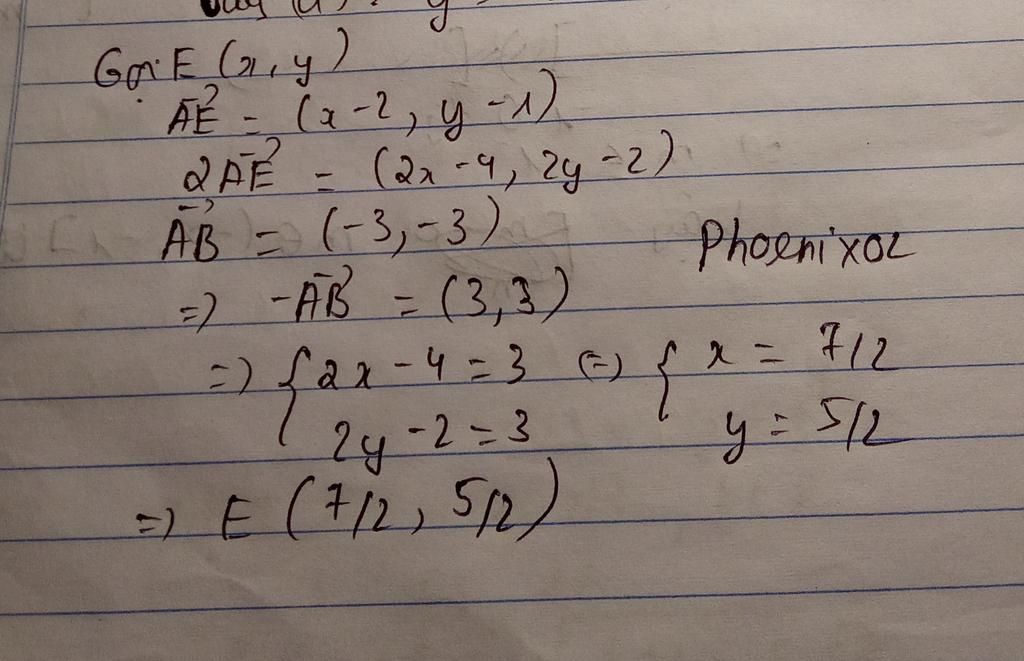 Gọi E (x, y)
AE = (x - 2, y - 1)
2AE = (2x - 4, 2y - 2)
AB = (-3, -3)
Phoenixoz
=) -AB = (3, 3)
=) { 2x - 4 = 3 (=) { x = 7/2
2y - 2 = 3 y = 5/2
=) E (7/2, 5/2)